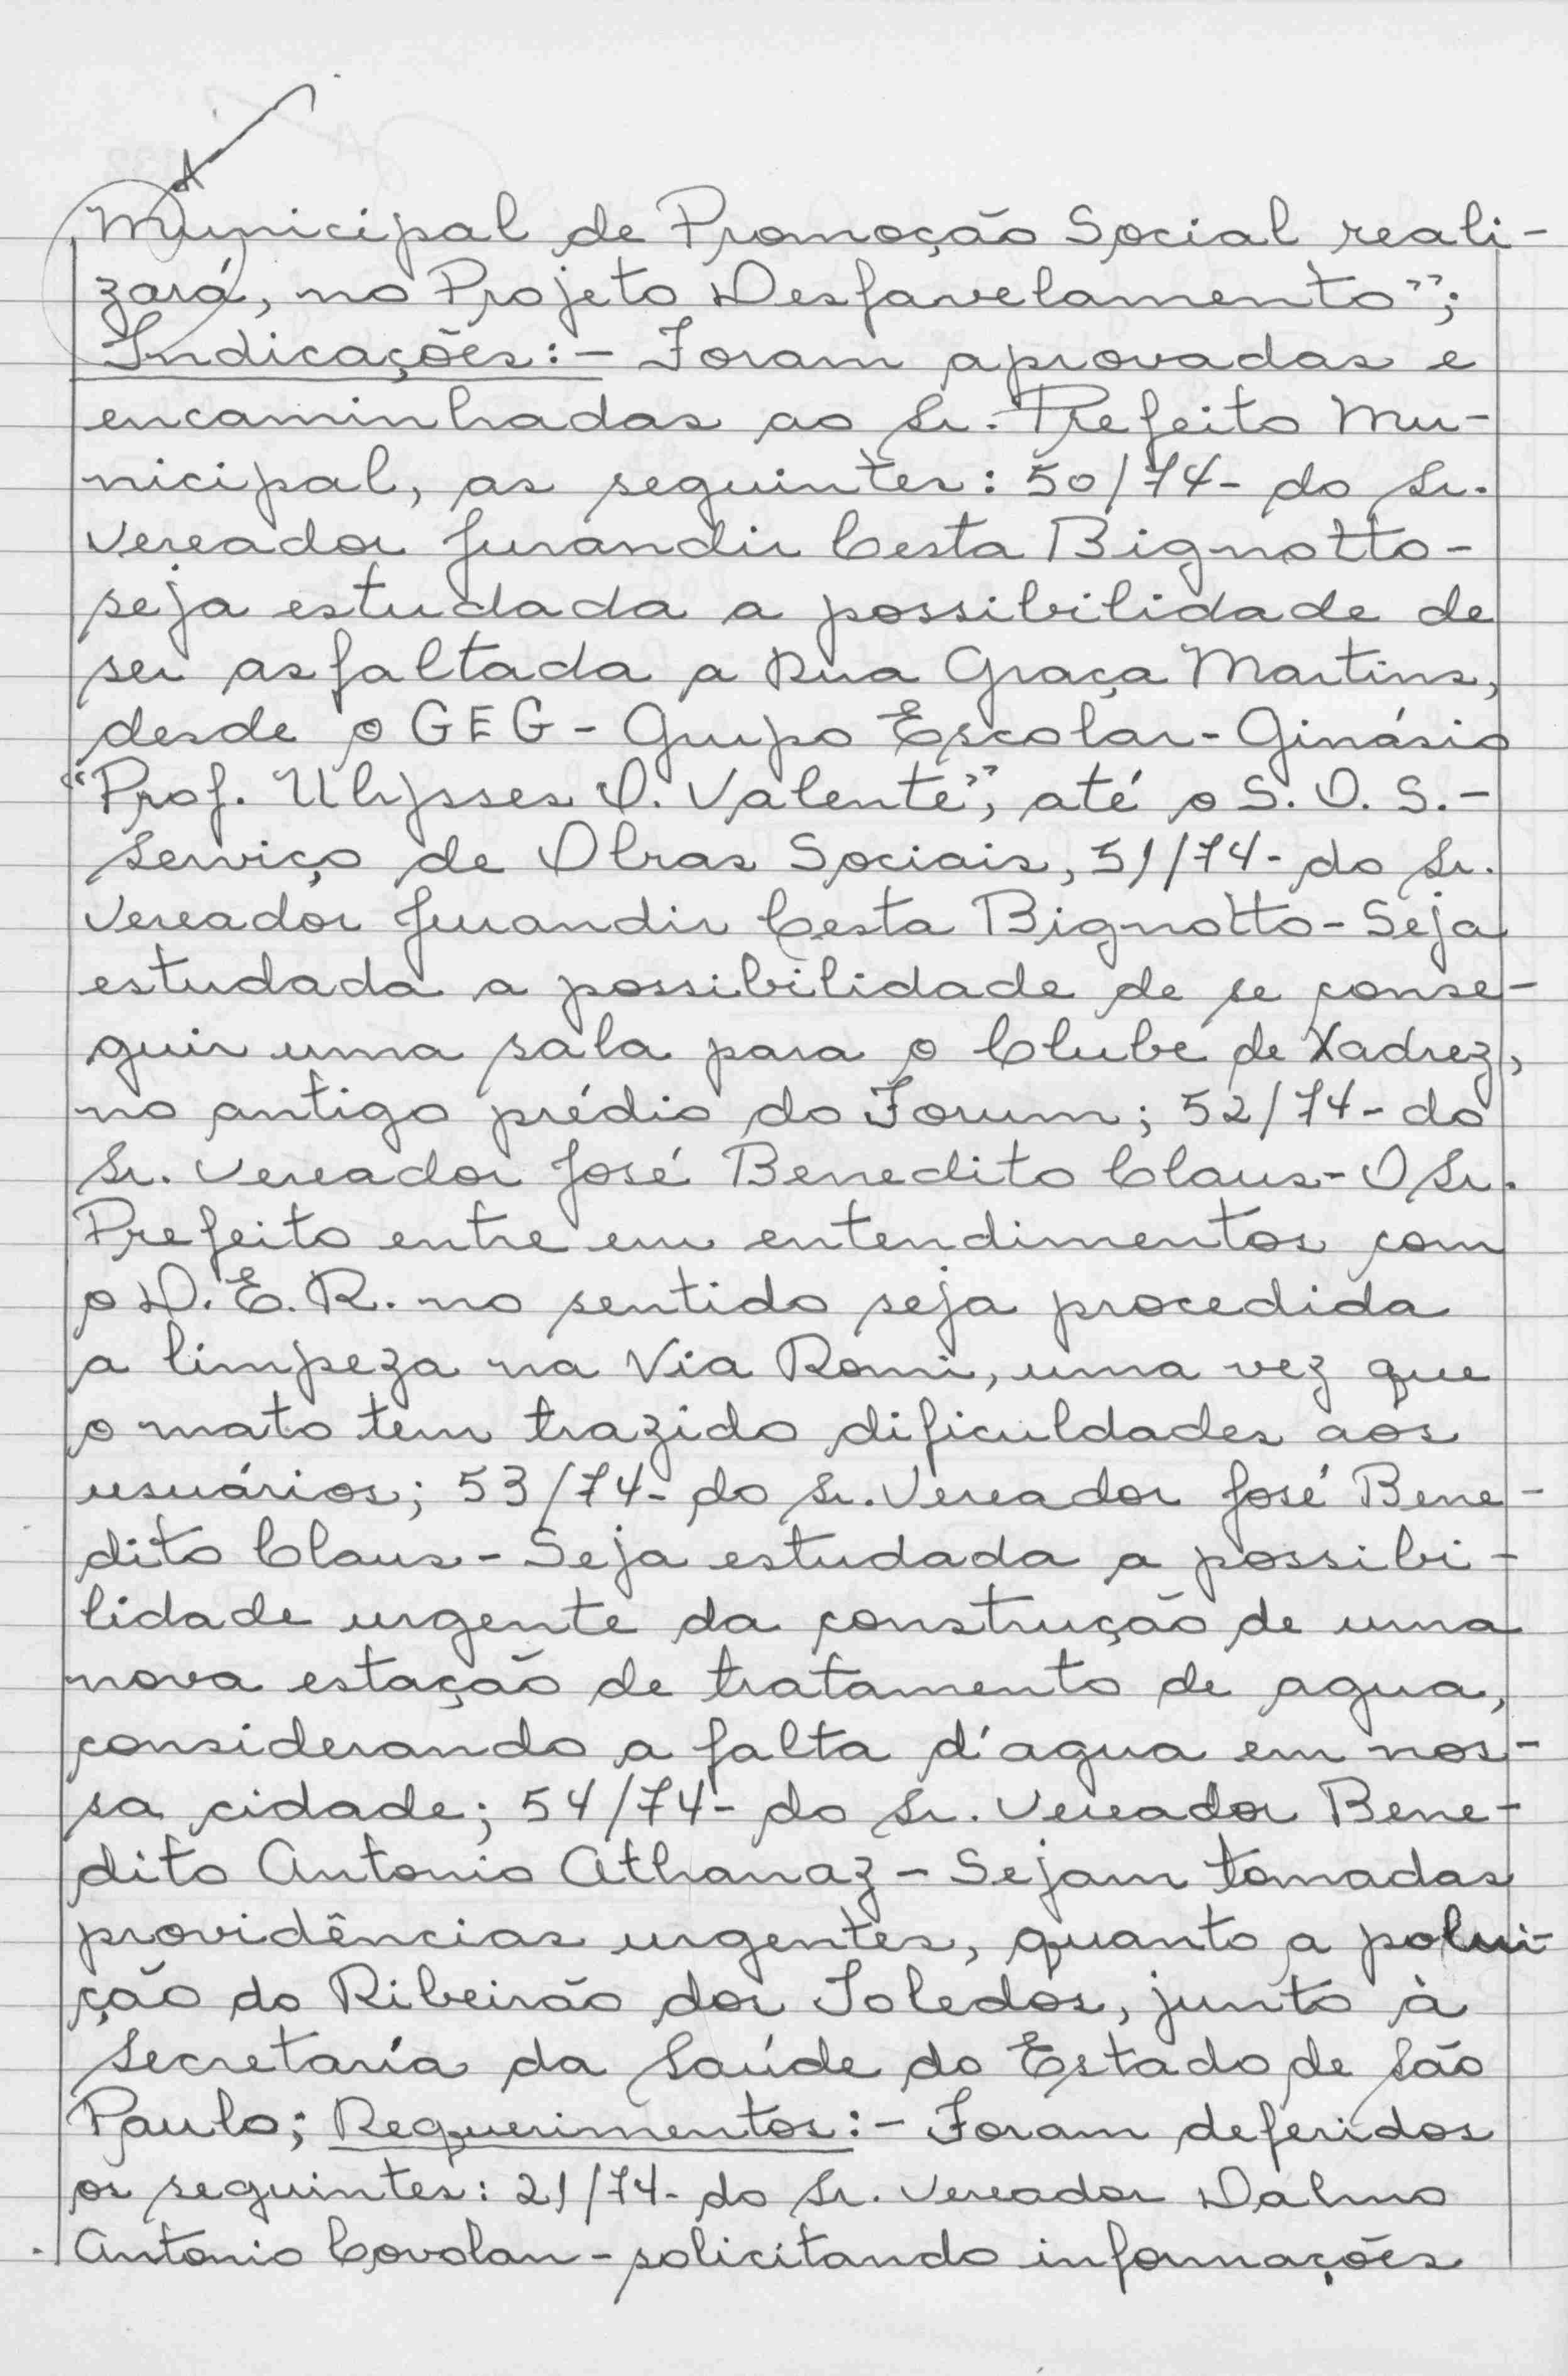 Municipal de Promoção Social reali-
zará, no Projeto Desfavelamento";
Indicações:- Foram aprovadas e
encaminhadas ao Sr. Prefeito Mu-
nicipal, as seguintes: 50/74- do Sr.
Vereador Jurandir Cesta Bignotto-
seja estudada a possibilidade de
ser asfaltada a Rua Graça Martins,
desde o GEG - Grupo Escolar-Ginásio
"Prof. Ulysses O. Valente", até o S.O.S.-
Serviço de Obras Sociais, 51/74- do Sr.
Vereador Jurandir Cesta Bignotto-Seja
estudada a possibilidade de se conse-
guir uma sala para o Clube de Xadrez,
no antigo prédio do Forum; 52/74- do
Sr. Vereador José Benedito Claus-O Sr.
Prefeito entre em entendimentos com
o D.E.R. no sentido seja procedida
a limpeza na Via Romi, uma vez que
o mato tem trazido dificuldades aos
usuários; 53/74- do Sr. Vereador José Bene-
dito Claus-Seja estudada a possibi-
lidade urgente da construção de uma
nova estação de tratamento de agua,
considerando a falta d'agua em nos-
sa cidade; 54/74- do Sr. Vereador Bene-
dito Antonio Athanaz-Sejam tomadas
providências urgentes, quanto a polui-
ção do Ribeirão dos Toledos, junto à
Secretaria da Saúde do Estado de São
Paulo; Requerimentos:- Foram deferidos
os seguintes: 21/74- do Sr. Vereador Dalmo
Antonio Covolan-solicitando informações